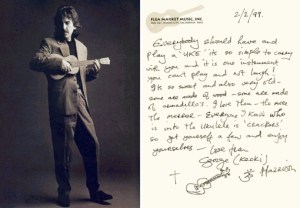 FLEA MARKET MUSIC, INC.
2/2/99.
Everybody should have and
play a 'UKE' its so simple to carry
with you and it is one instrument
you can't play and not laugh!
Its so sweet and also very old-
some are made of wood - some are made
of armadillo's. I love them - the more
the merrier - Everyone I know who
is into the Ukulele is 'crackers'
so get yourself a few and enjoy
yourselves -
Love from
George (Keoki)
Harrison